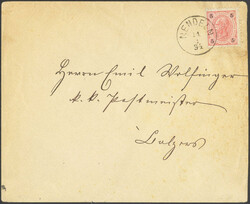 MENDE
5 5
5 5
Herrn Emil Wolfinger
k. k. Postmeister
Balzers